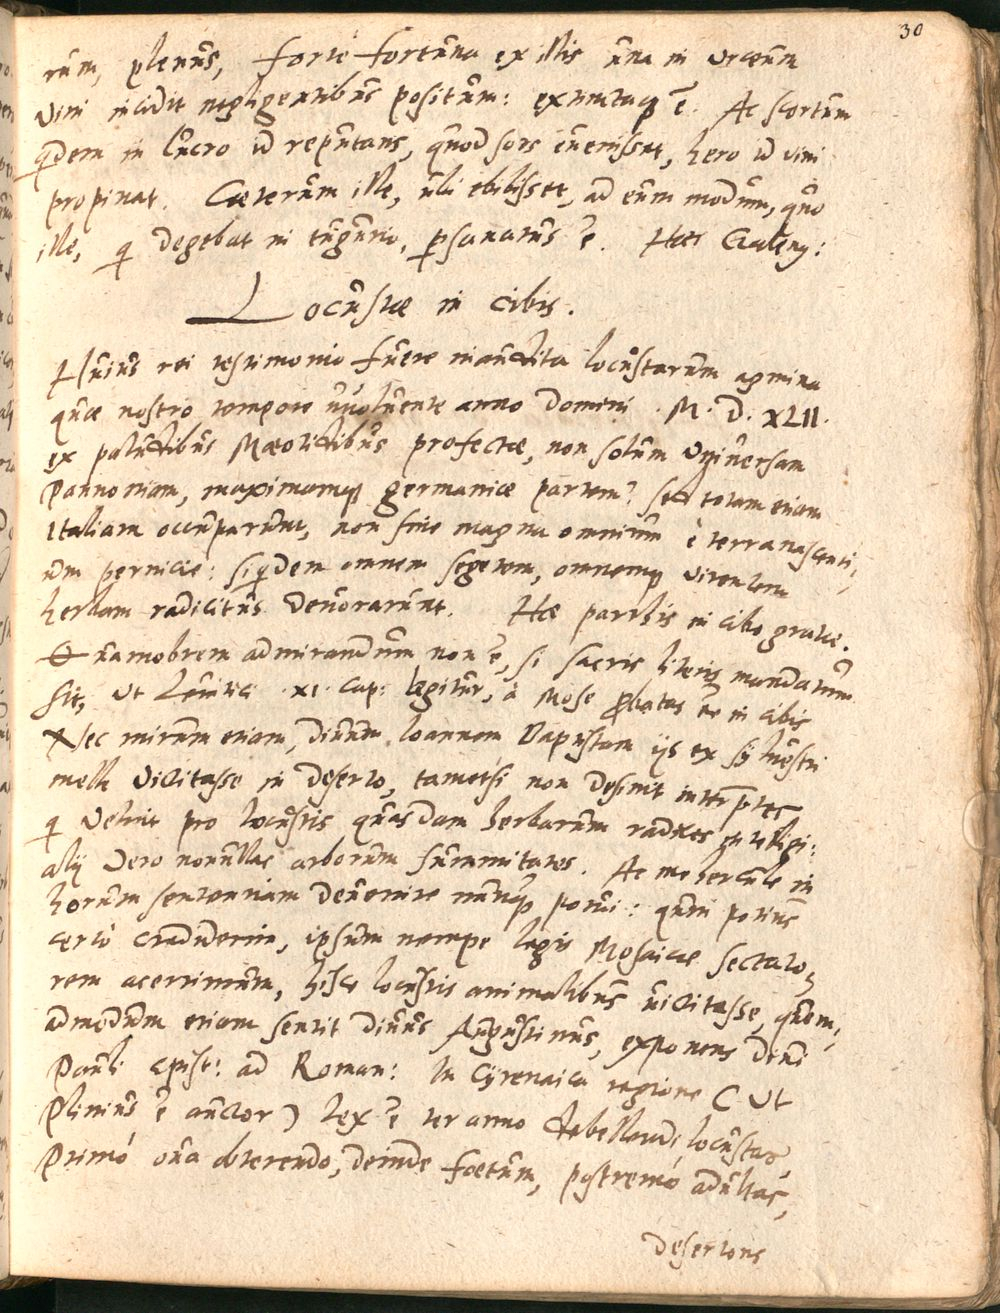 30
rum, plenus, forte fortuna ex illis una in urceum
vini incidit negligentibus positum: extinctaq̃ ẽ. At scortum
qdem in lucro id reputans, quod sors evenisset, hero id vini
propinat. Cæterum ille, ubi ebibisset, ad eum modum, quo
ille, q degebat in tugurio, psanatus ẽ. Hæc Galeng:
Locustæ in cibis.
Huius rei testimonio fuere inaudita locustarum agmina
quæ nostro tempore videlicet anno domini .M.D.XLII.
ex paludibus Mæotidibus profectæ, non solum Vniversam
Pannoniam, maximamq̃ germaniæ partem, sed totam etiam
Italiam occuparunt, non sine magna omnium è terra nascenti,,
um pernicie: siqdem omnem segetem, omnemq̃ virentem
herbam radicitus devorarunt. Hæ parthis in cibo gratæ.
Quamobrem admirandum non ẽ, si sacris literis mandatum
sit, ut Levitici .XI. cap: legitur, à Mose pbatas ẽẽ in cibis
Nec mirum etiam, divum Ioannem Baptistam ijs ex sylvestri
melle victitasse in deserto, tametsi non desint interptes
q velint pro locustis quasdam herbarum radices intelligi:
alij vero nonnullas arborum summitates. At me hercule in
horum sententiam devenire nunq̃ potui: quin potius
certò crediderim, ipsum nempe legis Mosaicæ sectato,,
rem acerrimum, hisce locustis animalibus victitasse, quem,,
admodum etiam sentit divus Augustinus, exponens divi
Pauli epist: ad Roman: In Cyrenaica regione ( Ut
Plinius ẽ auctor ) lex ẽ ter anno debellandi locustas,
Primó ova obterendo, deinde fœtum, postremó adultas,
desertoris